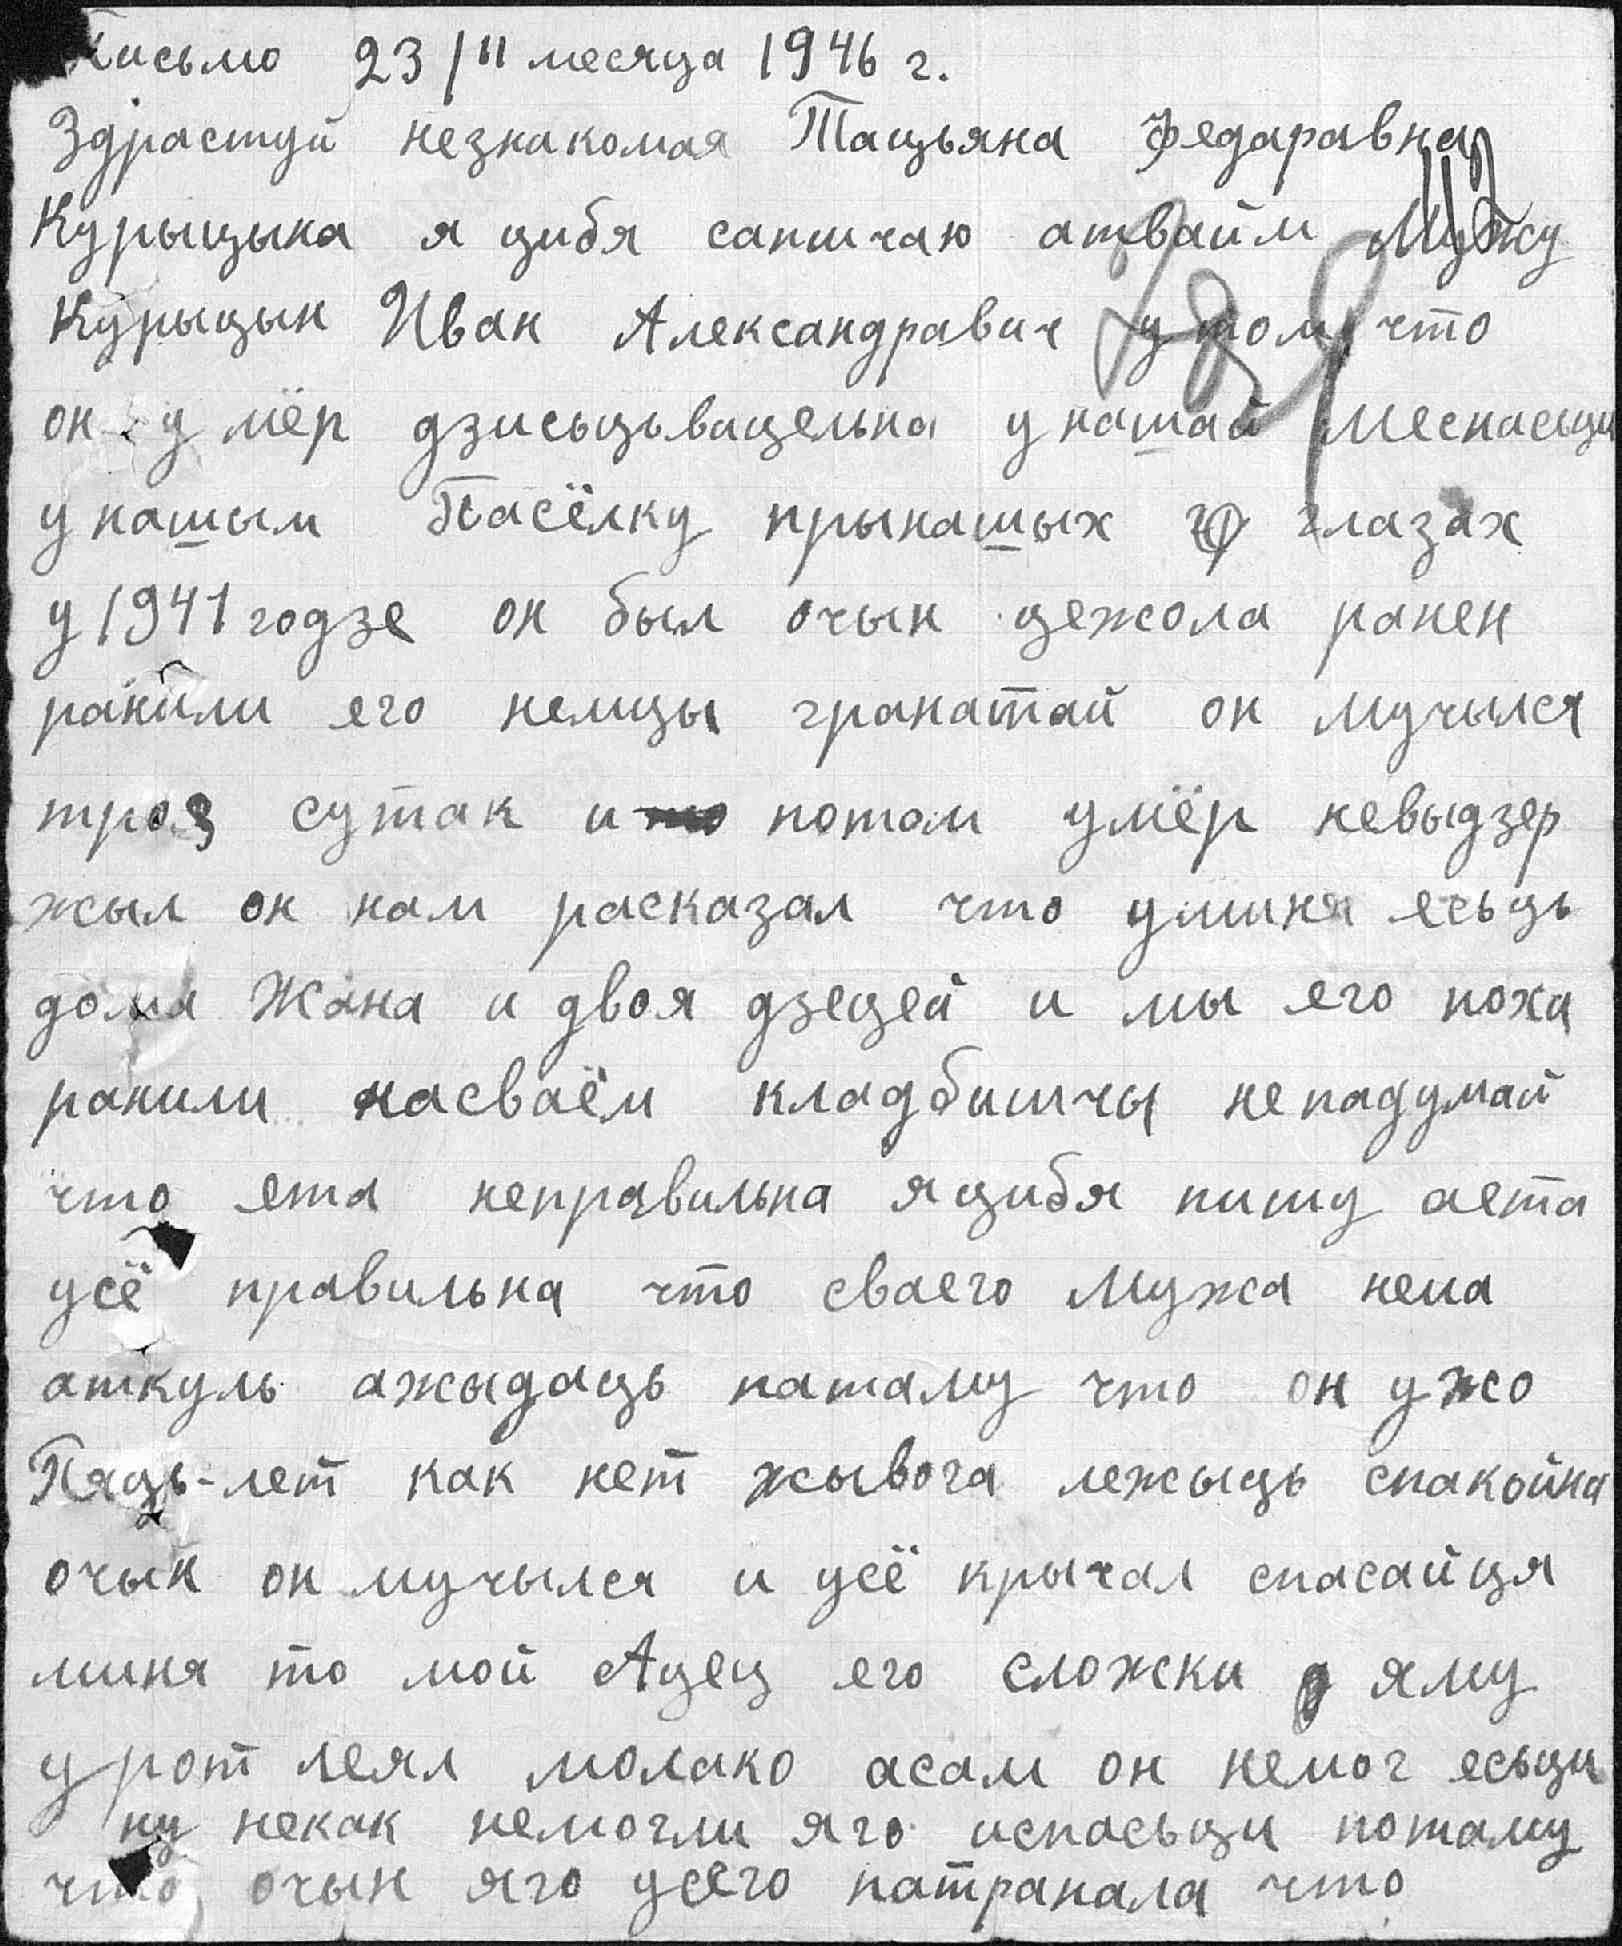 Письмо 23/II месяца 1946 г.
Здрастуй незнакомая Тацьяна Федаравна
Курыцына я цибя сапшчаю атваём Мужу
Курыцын Иван Александравич у том что
он у мёр дзисьцьвицельна у нашай меснасьци
у нашым Пасёлку прынашых глазах
у 1941 годзе он был очын цежола ранен
ранили его немцы гранатай он мучылся
троя сутак и потом умёр невыдзер
жыл он нам расказал что уминя есьць
дома Жана и двоя дзецей и мы его поха
ранили насваём кладбишчы неподумай
что ета неправильна я цибя пишу аета
усё правильна что сваего мужа неиа
аткуль ажыдаць патаму что он ужо
Пяць-лет как нет жывога лежыць спакойна
очын он мучылся и усё крычал спасайця
миня то мой Ацец его сложки яму
у рот леял молако асам он немог есьци
ну некак немогли яго испасьци потаму
что очын яго усяго патрапала что